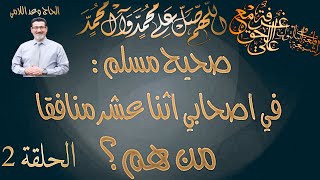 الحاج وعد اللامي
اللهم صل على محمد وآل محمد
صحيح مسلم :
في اصحابي اثنا عشر منافقا
من هم ؟
الحلقة 2